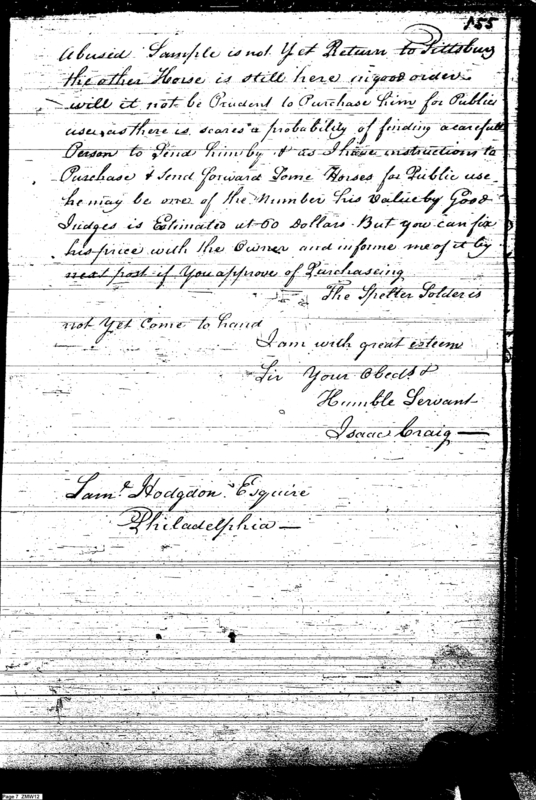 155
abused. Sample is not Yet Return to Pittsburg
the other Horse is still here in good order
will it not be Prudent to Purchase him for Public
use, as there is scarse a probability of finding a carefull
Person to Send him by & as I have instructions to
Purchase & Send forward Some Horses for Public use
he may be one of the Number his Value by Good
Judges is Estimated at 60 Dollars. But you can fix
his price with the Owner and informe me of it by
next post if You approve of Purchaseing
The Spelter Solder is
not Yet Come to hand
I am with great esteem
Sir Your Obedt &
Humble Servant
Isaac Craig —
Saml Hodgdon Esquire
Philadelphia —
Page 7 ZMW12